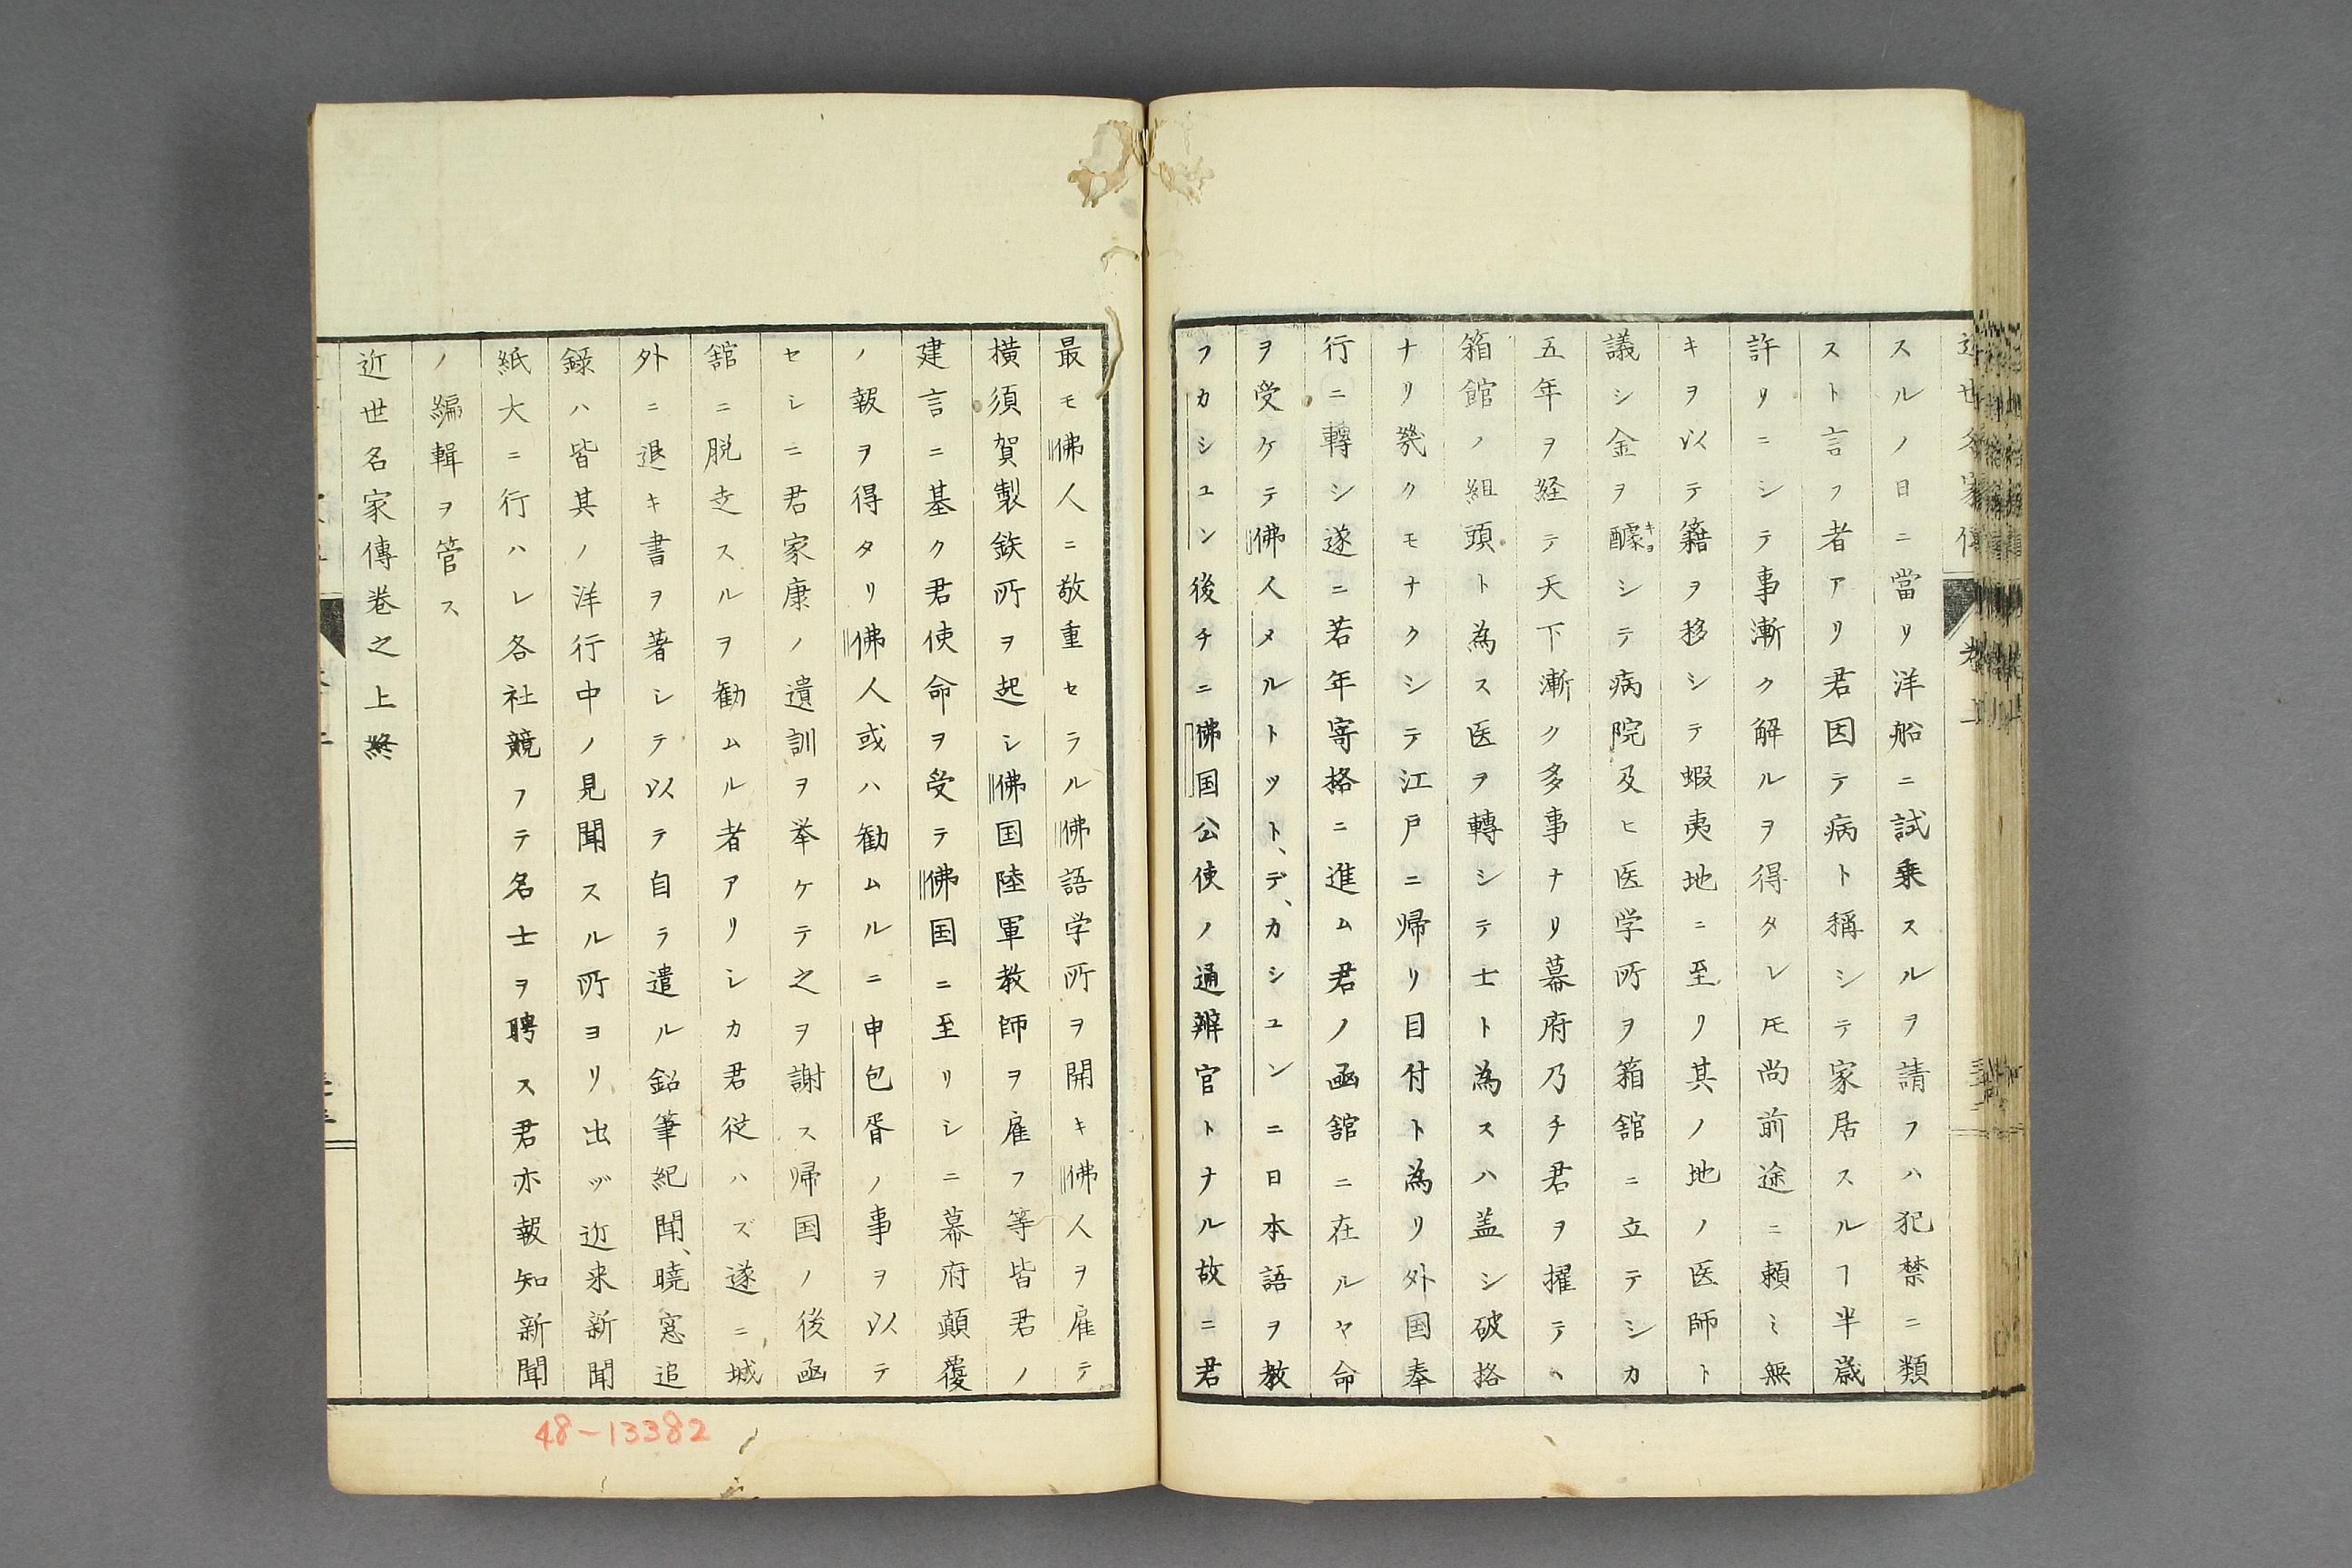 スルノ日ニ當リ洋船ニ試乗スルヲ請フハ犯禁ニ類
スト言フ者アリ君因テ病ト稱シテ家居スルヿ半歳
許リニシテ事漸ク解ルヲ得タレ𪜈尚前途ニ頼ミ無
キヲ以テ籍ヲ移シテ蝦夷地ニ至リ其ノ地ノ医師ト
議シ金ヲ醵キヨシテ病院及ヒ医学所ヲ箱舘ニ立テシカ
五年ヲ経テ天下漸ク多事ナリ幕府乃チ君ヲ擢テヽ
箱館ノ組頭ト為ス医ヲ轉シテ士ト為スハ盖シ破格
ナリ幾クモナクシテ江戸ニ帰リ目付ト為リ外国奉
行ニ轉シ遂ニ若年寄格ニ進ム君ノ函舘ニ在ルヤ命
ヲ受ケテ佛人メルトツト、デ、カシユンニ日本語ヲ教
フカシユン後チニ佛国公使ノ通辨官トナル故ニ君
最モ佛人ニ敬重セラル佛語学所ヲ開キ佛人ヲ雇テ
横須賀製鉄所ヲ起シ佛国陸軍教師ヲ雇フ等皆君ノ
建言ニ基ク君使命ヲ受テ佛国ニ至リシニ幕府顛覆
ノ報ヲ得タリ佛人或ハ勧ムルニ申包胥ノ事ヲ以テ
セシニ君家康ノ遺訓ヲ举ケテ之ヲ謝ス帰国ノ後函
舘ニ脱走スルヲ勧ムル者アリシカ君従ハズ遂ニ城
外ニ退キ書ヲ著シテ以テ自ラ遣ル鉛筆紀聞、曉窓追
録ハ皆其ノ洋行中ノ見聞スル所ヨリ出ヅ近来新聞
紙大ニ行ハレ各社競フテ名士ヲ聘ス君亦報知新聞
ノ編輯ヲ管ス
近世名家傳巻之上終
48-13382